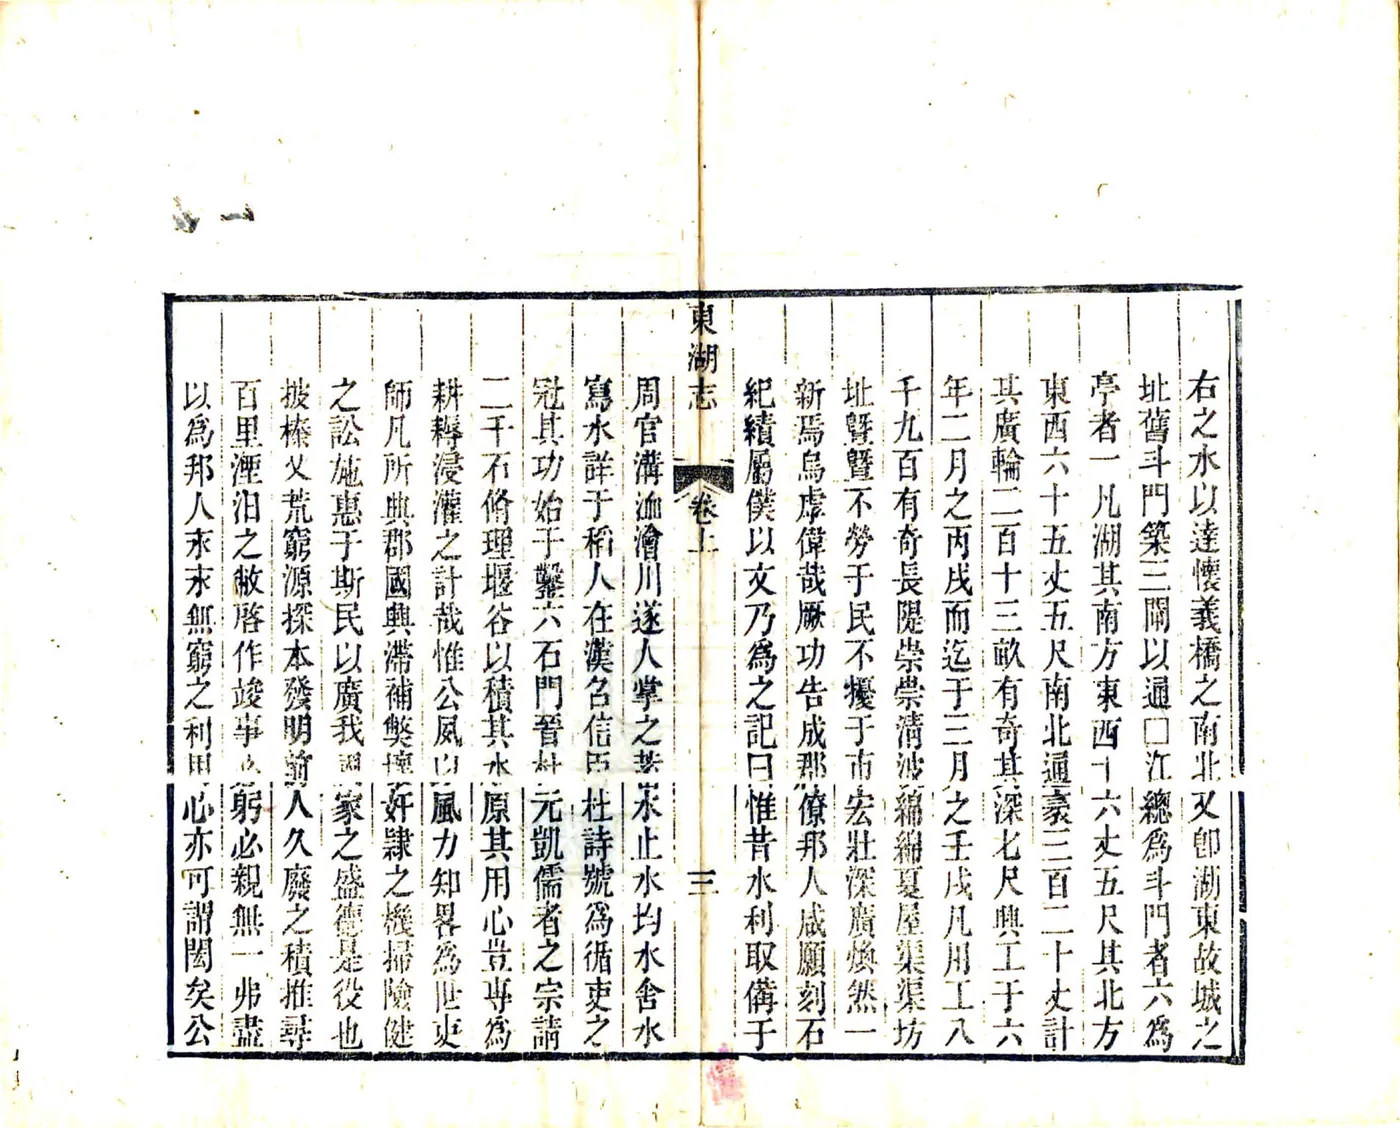 右之水以達懷義橋之南北又卽湖東故城之
址舊斗門築三閘以通□江總爲斗門者六爲
亭者一凡湖其南方東西十六丈五尺其北方
東西六十五丈五尺南北通袤三百二十丈計
其廣輪二百十三畝有奇其深七尺興工于六
年二月之丙戌而迄于三月之壬戌凡用工八
千九百有奇長隄崇崇淸波綿綿夏屋渠渠坊
址曁曁不勞于民不擾于市宏壯深廣煥然一
新焉烏虖偉哉厥功告成郡僚邦人咸願刻石
紀績屬僕以文乃爲之記曰惟昔水利取備于
東湖志 卷上 三
周官溝洫澮川遂人掌之 水止水均水舍水
寫水詳于稻人在漢召信臣杜詩號爲循吏之
冠其功始于鑿六石門晉杜元凱儒者之宗請
二千石脩理堰谷以積其水原其用心豈專爲
耕耨浸灌之計哉惟公風 風力知畧為世吏
師凡所典郡國興滯補獘 奸隷之機掃險健
之訟施惠于斯民以廣我國家之盛德是役也
披榛乂荒窮源探本發明前人久廢之積推尋
百里湮汨之敝啓作竣事 躬必親無一弗盡
以爲邦人永永無窮之利用心亦可謂閎矣公